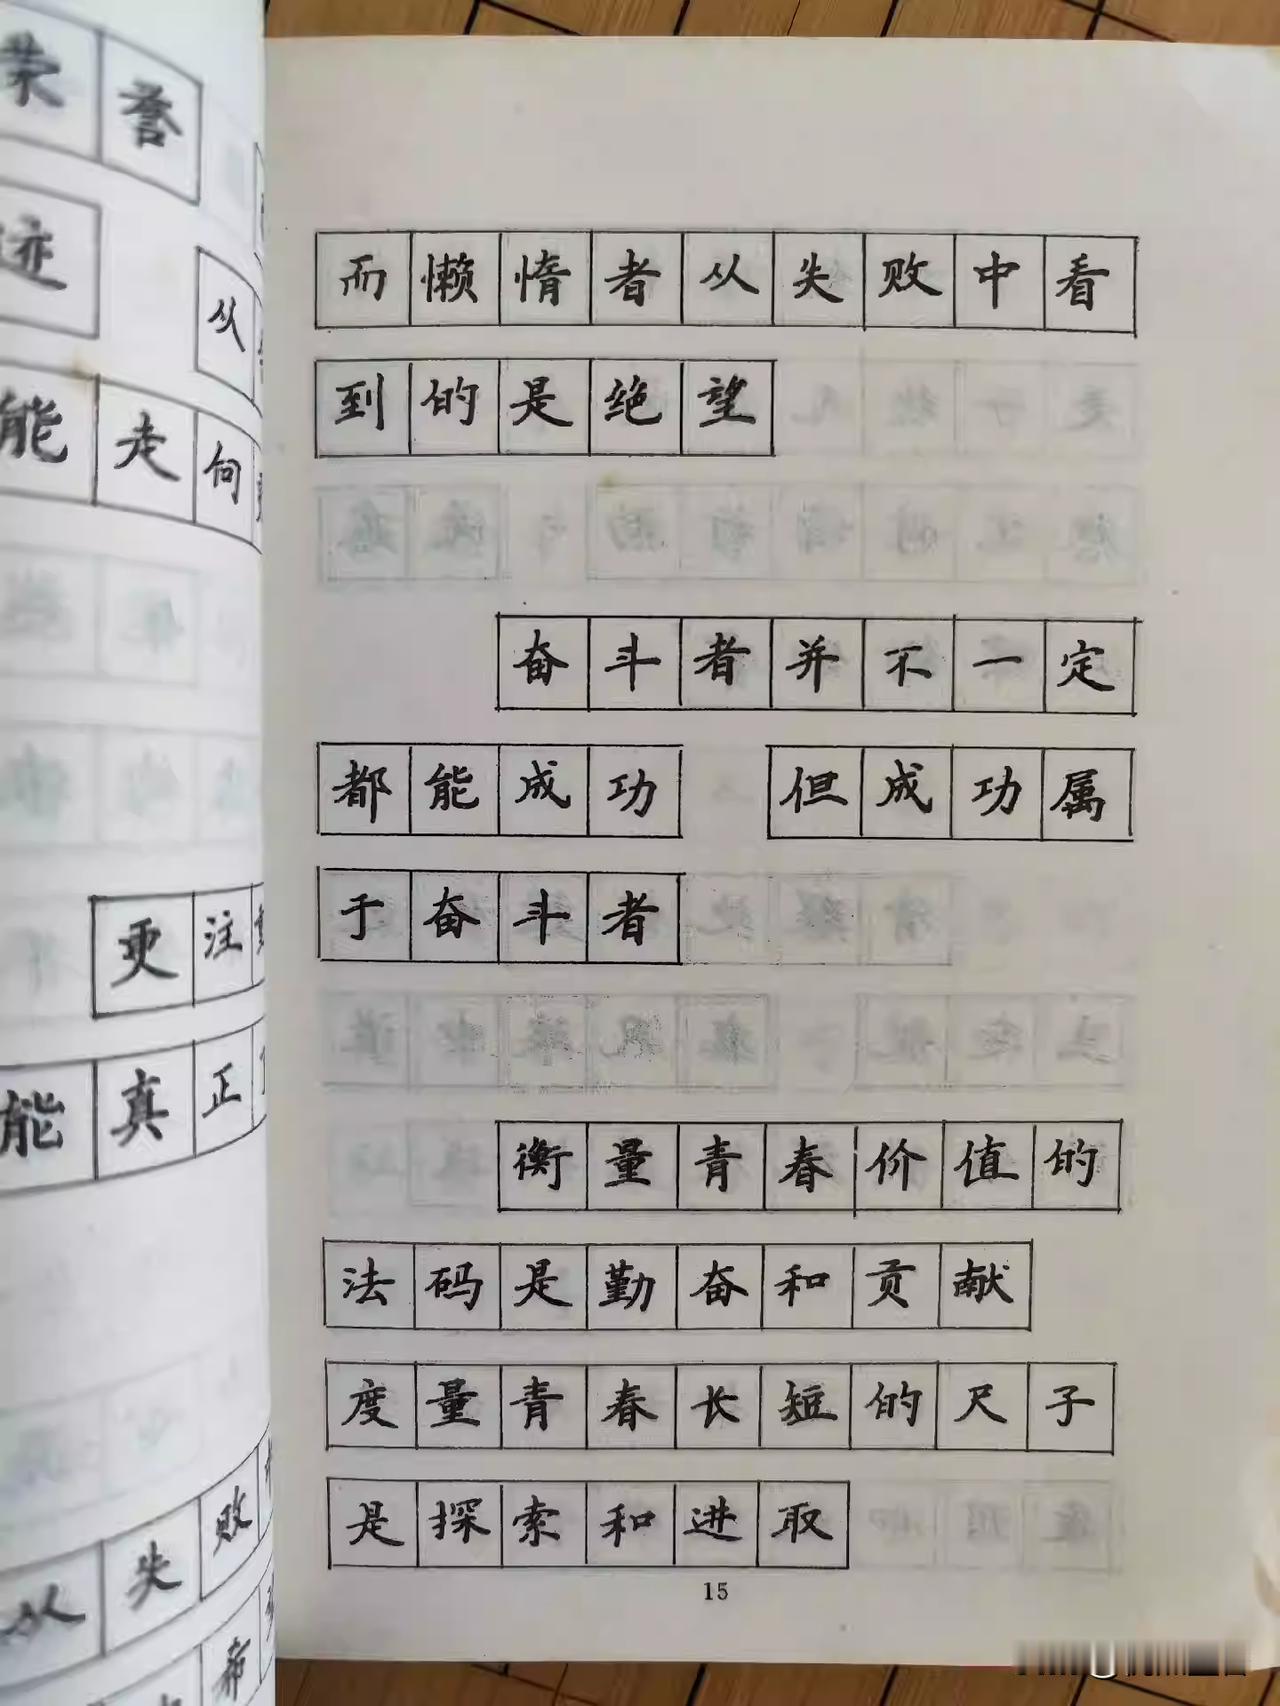 荣誉
迹
从
能走向
更注
能真正
败
从失
而懒惰者从失败中看
到的是绝望
奋斗者并不一定
都能成功 但成功属
于奋斗者
衡量青春价值的
法码是勤奋和贡献
度量青春长短的尺子
是探索和进取
15